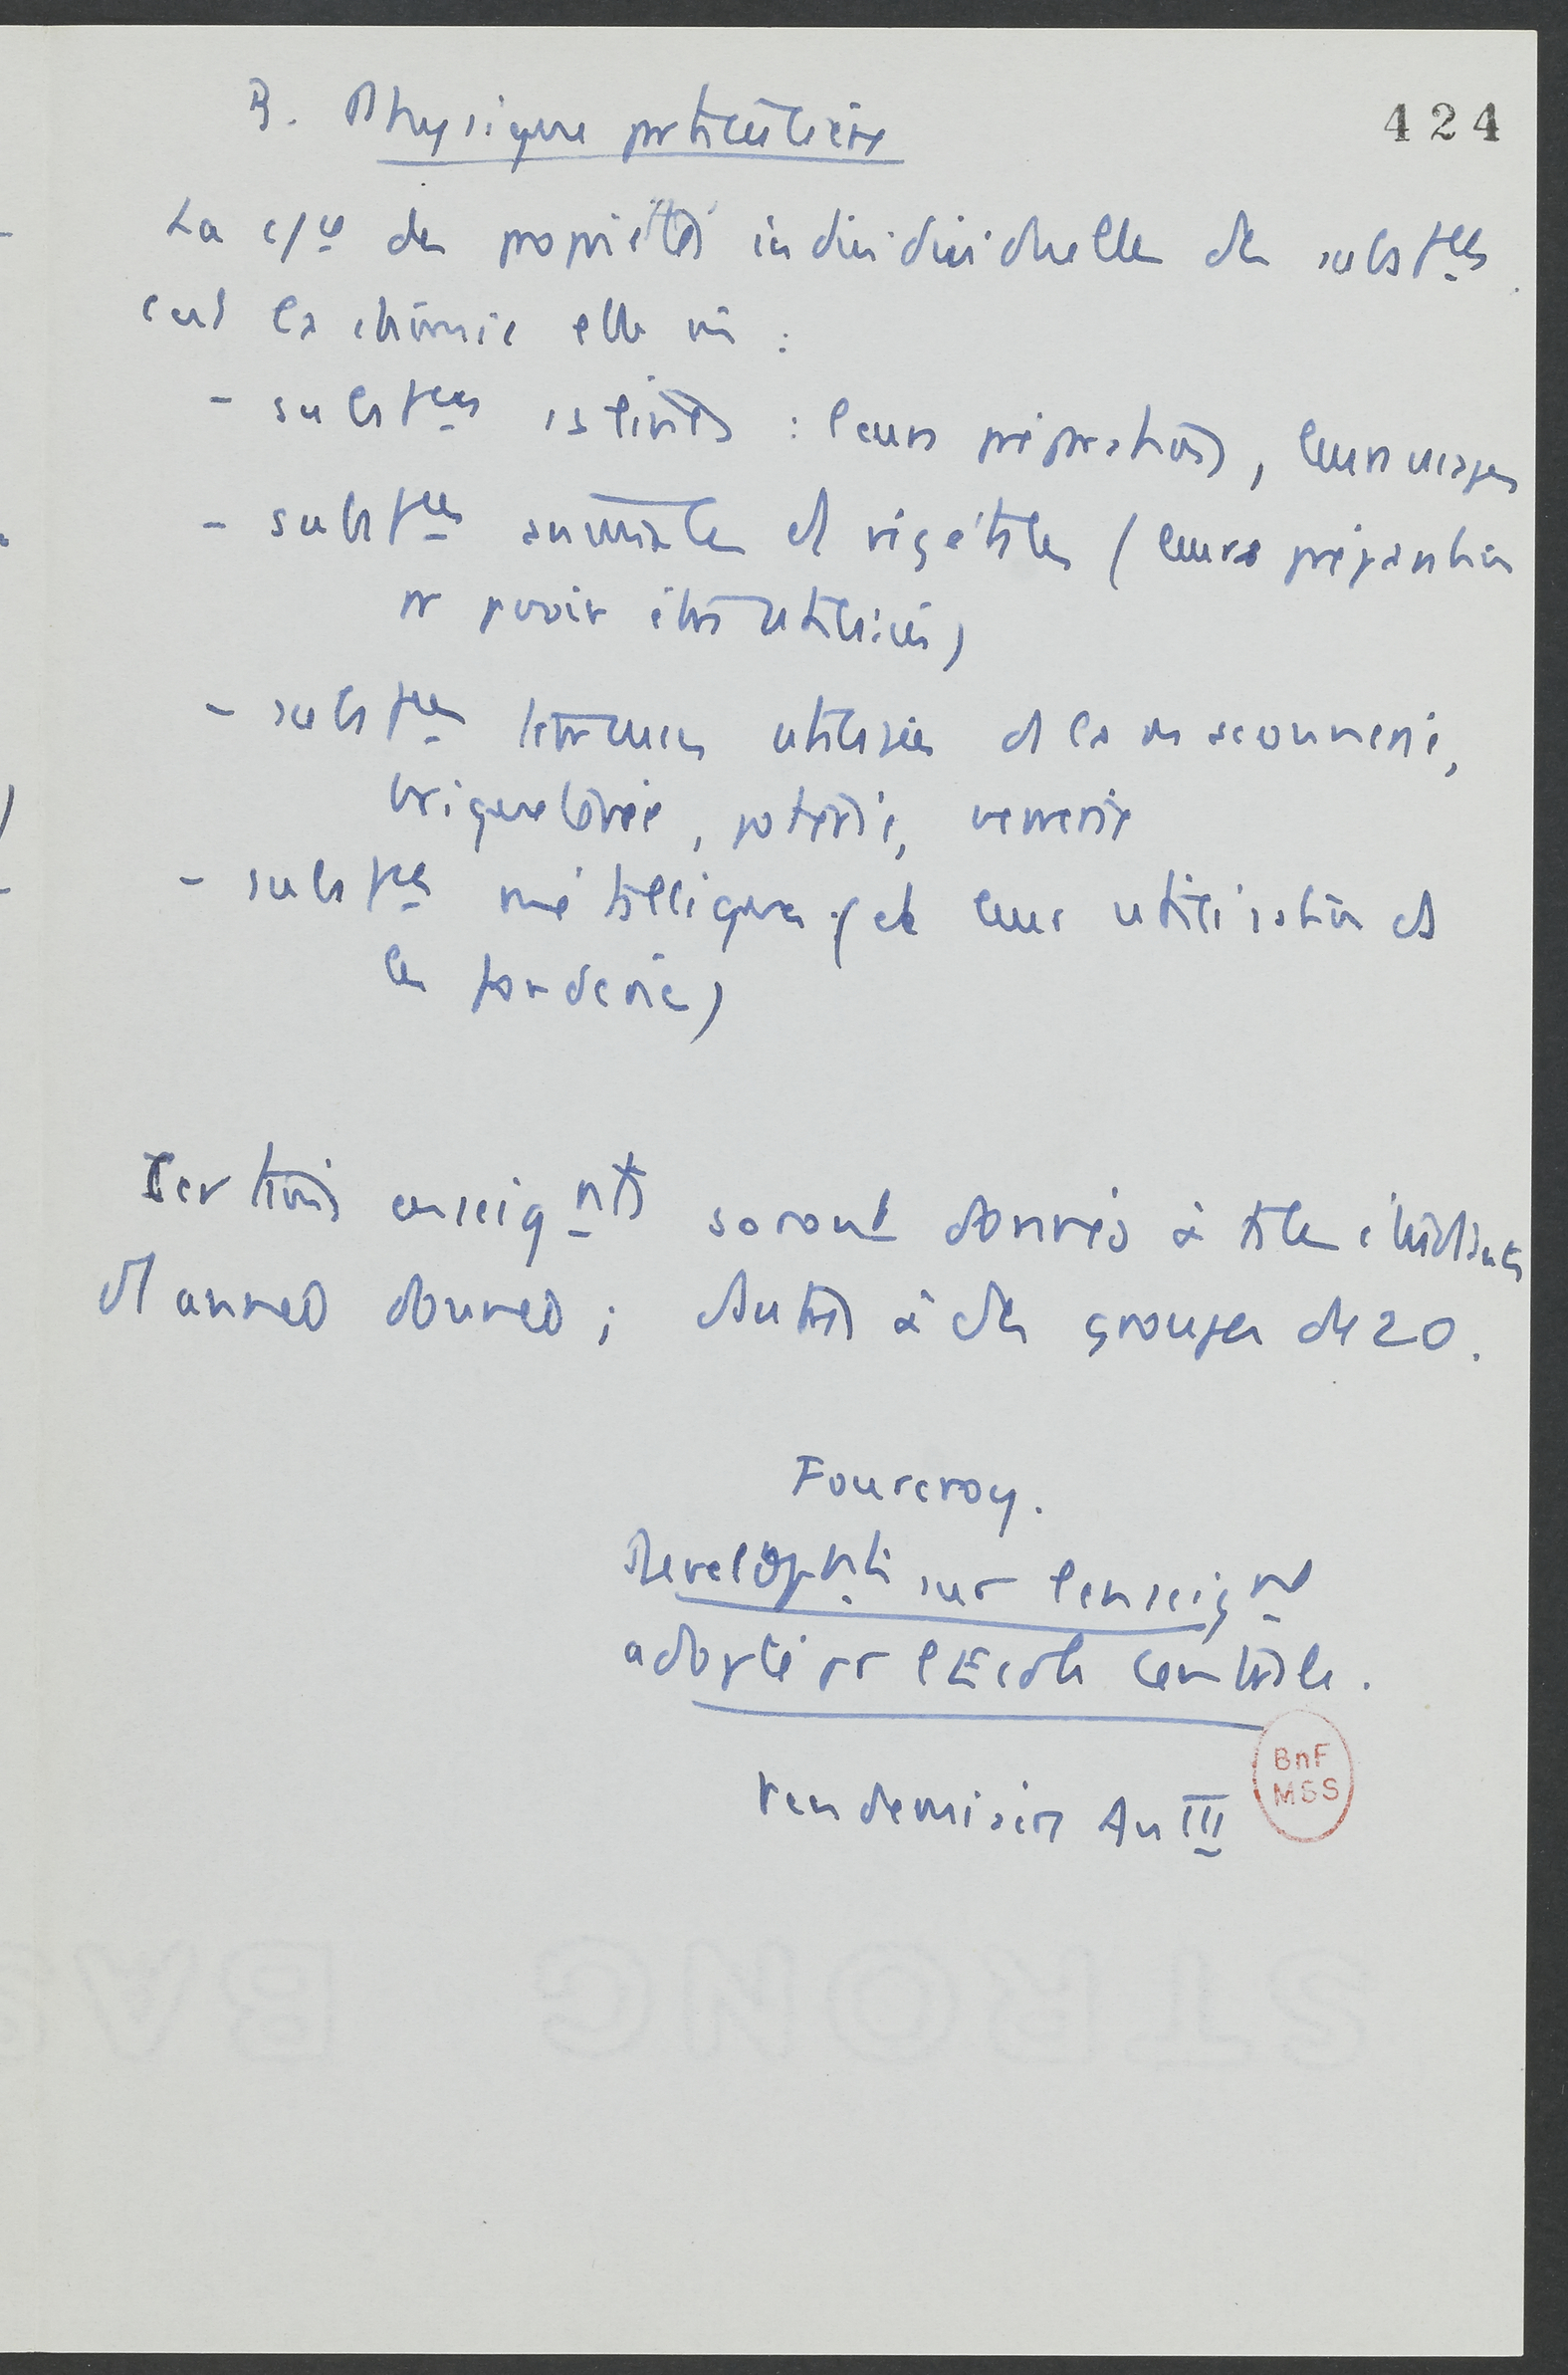 424
B. Physique particulière
La c/ce des propriétés individividuelles des subst^ces
c'est la chimie elle mê :
- subst^ces salines : leurs préparations, leurs usages
- subst^ces animales et végétales (leurs préparation
pr pvoir être utilisées)
- subst^ces terreuses utilisées ds la maçonnerie,
briqueterie, poterie, verrerie
- subst^ces métalliques (et leur utilisation ds
la fonderie)
Certains enseig^nts seront donnés à ts les étudiants
d'1 année donnée ; d'autres à des groupes de 20.
Fourcroy.
Développ^nts sur l'enseig^nt
adopté pr l'Ecole Centrale.
Vendemiaire An III
BnF
MSS
STRONG BAS